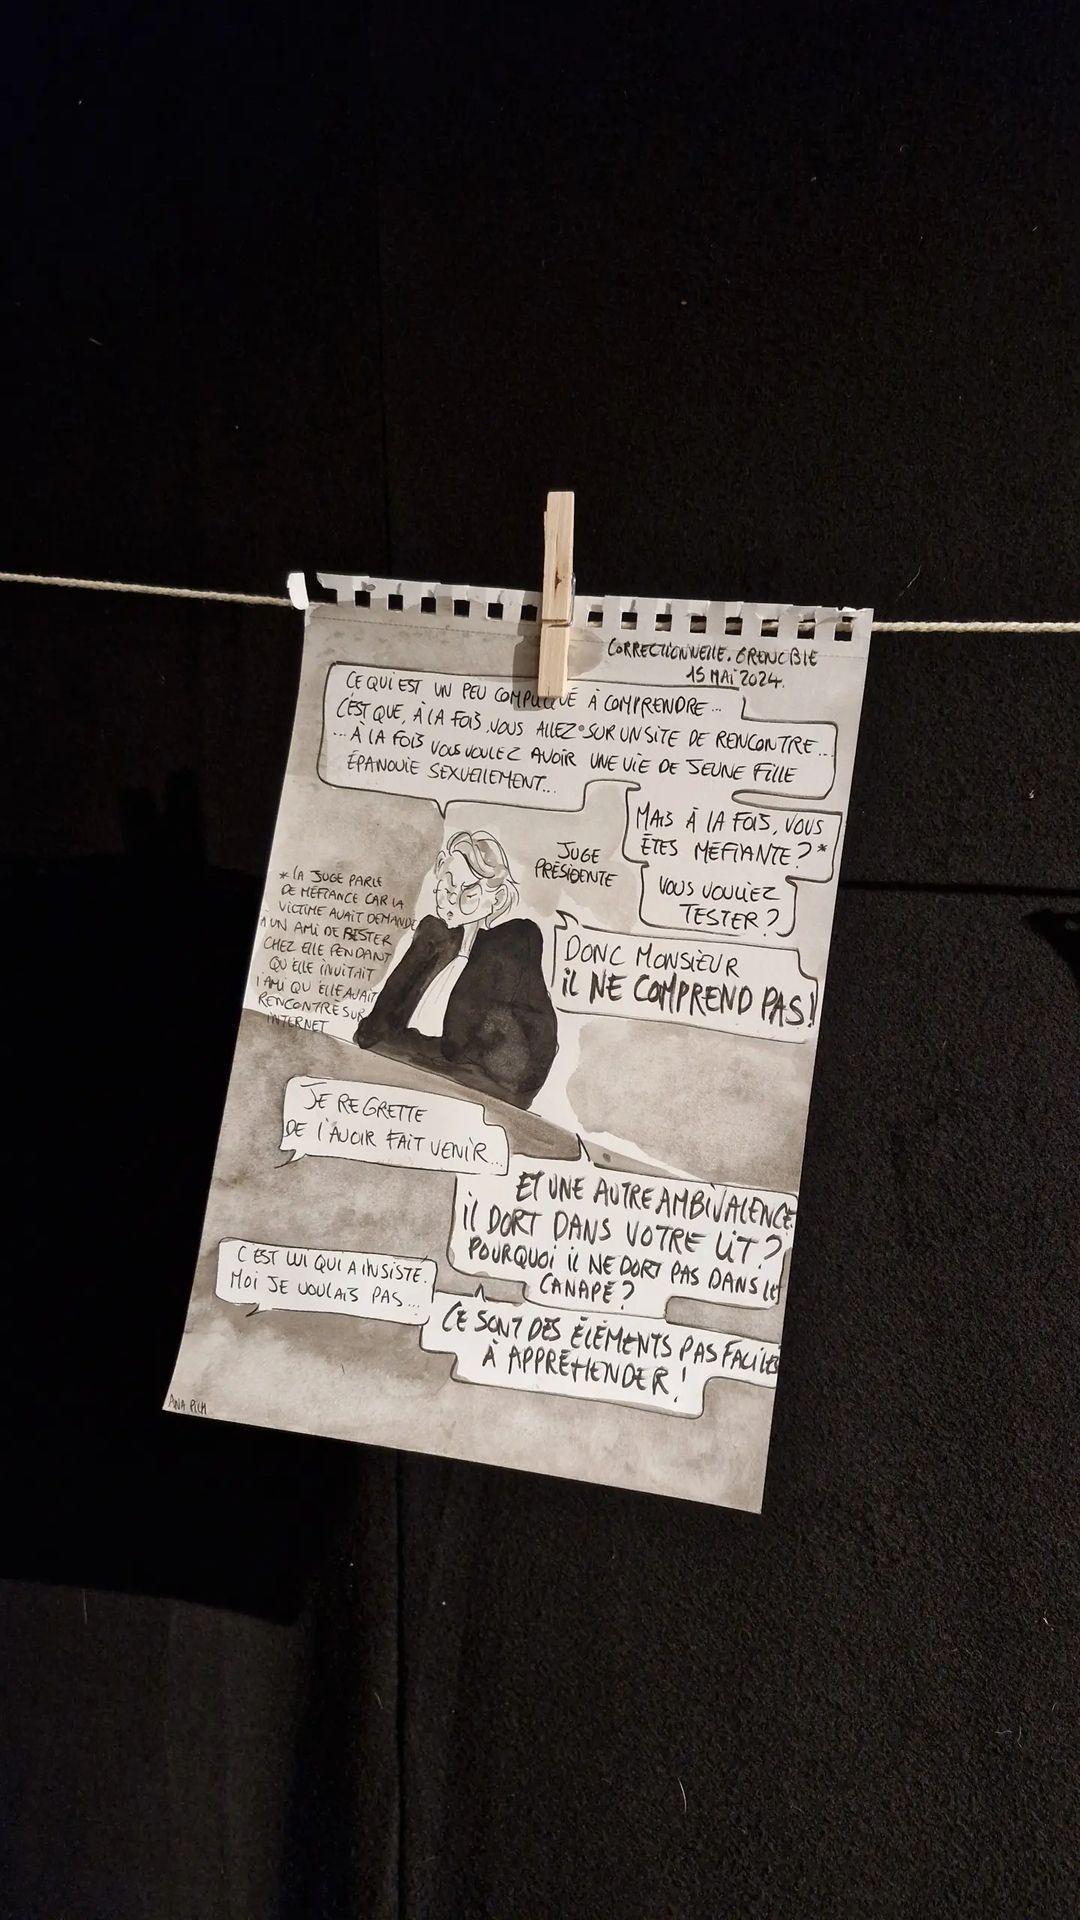 CORRECTIONNELLE. GRENOBLE
15 MAI 2024.
CE QUI EST UN PEU COMPLIQUÉ À COMPRENDRE...
C'EST QUE, À LA FOIS, VOUS ALLEZ SUR UN SITE DE RENCONTRE...
... À LA FOIS VOUS VOULEZ AVOIR UNE VIE DE JEUNE FILLE
ÉPANOUIE SEXUELLEMENT...
MAIS À LA FOIS, VOUS
ÊTES MÉFIANTE ? *
VOUS VOULIEZ
TESTER ?
JUGE
PRÉSIDENTE
* LA JUGE PARLE
DE MÉFIANCE CAR LA
VICTIME AVAIT DEMANDÉ
À UN AMI DE RESTER
CHEZ ELLE PENDANT
QU'ELLE INVITAIT
L'AMI QU'ELLE AVAIT
RENCONTRÉ SUR
INTERNET
DONC MONSIEUR
IL NE COMPREND PAS !
JE REGRETTE
DE L'AVOIR FAIT VENIR...
ET UNE AUTRE AMBIVALENCE
IL DORT DANS VOTRE LIT ?
POURQUOI IL NE DORT PAS DANS LE
CANAPÉ ?
C'EST LUI QUI A INSISTÉ.
MOI JE VOULAIS PAS...
CE SONT DES ÉLÉMENTS PAS FACILES
À APPRÉHENDER !
ANA PICH